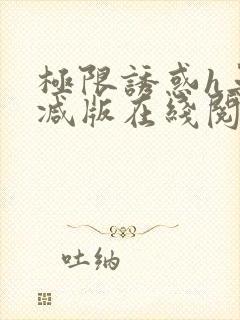 極限誘惑h
減版在綫閱
吐纳